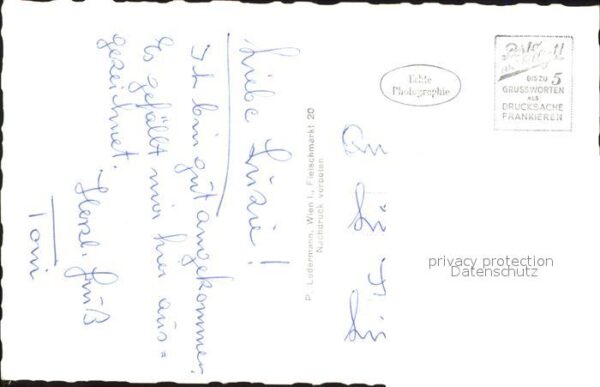 Liebe Luzie!
Ich bin gut angekommen.
Es gefällt mir hier aus=
gezeichnet.
Herzl. Gruß
Toni
P. Ludermann, Wien I., Fleischmarkt 20
Nachdruck verboten
Echte
Photographie
Porto
BIS ZU 5
GRUSSWORTEN
ALS
DRUCKSACHE
FRANKIEREN
privacy protection
Datenschutz